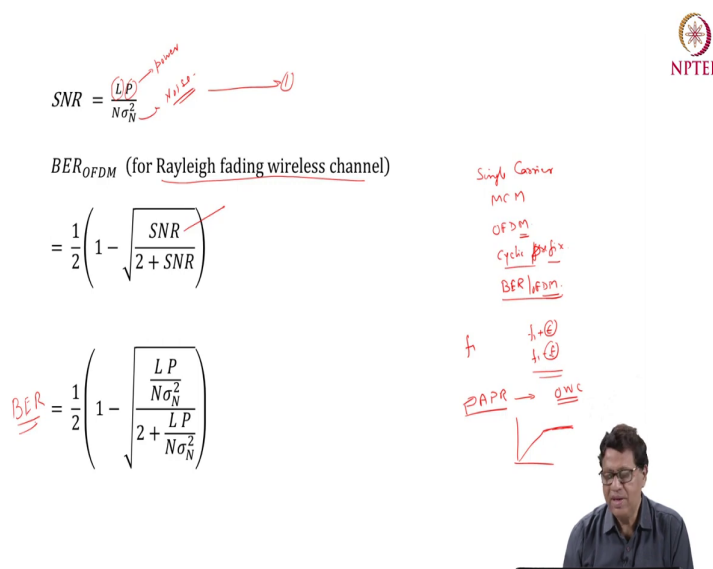 NPTEL
SNR = L P / Nσ_N^2
power
Noise.
1
BER_OFDM (for Rayleigh fading wireless channel)
= 1/2 (1 − √(SNR / (2 + SNR)))
BER = 1/2 (1 − √((L P / Nσ_N^2) / (2 + L P / Nσ_N^2)))
Single Carrier
MCM
OFDM
Cyclic prefix
BER/OFDM.
f₁ f₁+ε
f₁-ε
PAPR → OWC